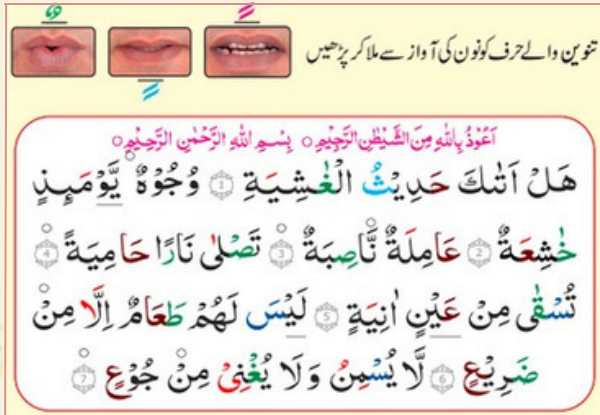 تنوین والے حرف کو نون کی آواز سے ملا کر پڑھیں
اَعُوْذُ بِاللّٰهِ مِنَ الشَّيْطٰنِ الرَّجِيْمِ ○ بِسْمِ اللّٰهِ الرَّحْمٰنِ الرَّحِيْمِ ○
هَلْ اَتٰىكَ حَدِيْثُ الْغَاشِيَةِ ۝1 وُجُوْهٌ يَّوْمَىِٕذٍ
خَاشِعَةٌ ۝2 عَامِلَةٌ نَّاصِبَةٌ ۝3 تَصْلٰى نَارًا حَامِيَةً ۝4
تُسْقٰى مِنْ عَيْنٍ اٰنِيَةٍ ۝5 لَيْسَ لَهُمْ طَعَامٌ اِلَّا مِنْ
ضَرِيْعٍ ۝6 لَّا يُسْمِنُ وَلَا يُغْنِيْ مِنْ جُوْعٍ ۝7